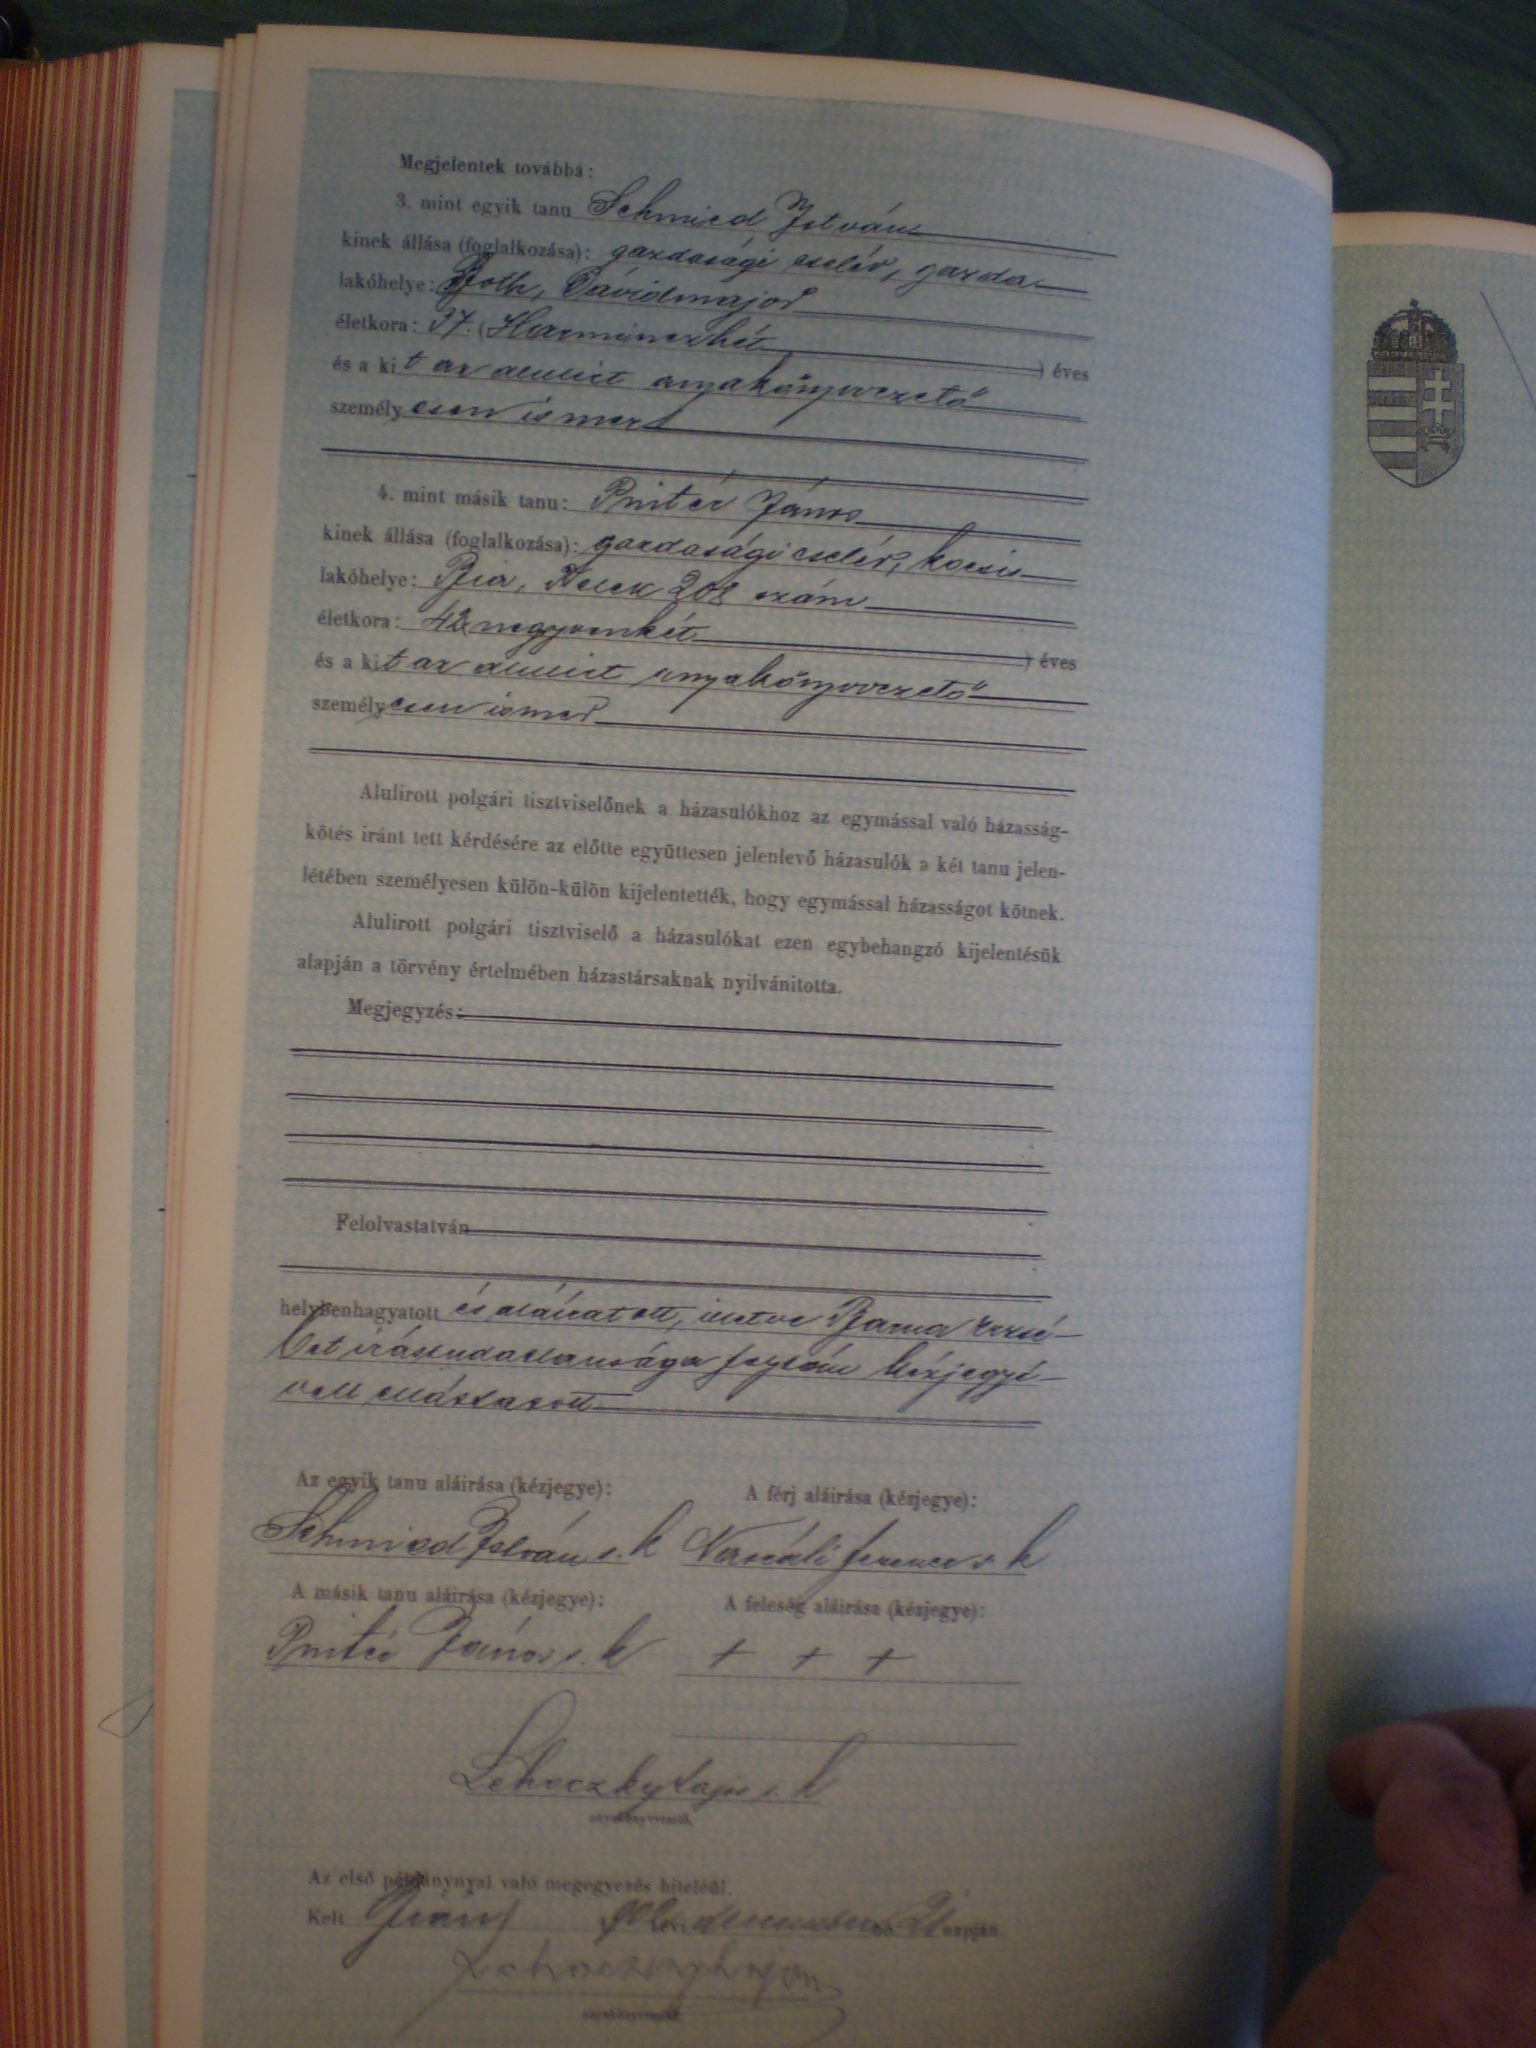 Megjelentek továbbá:
3. mint egyik tanu Schmied István
kinek állása (foglalkozása): gazdasági cselér, gazda
lakóhelye: Dávidmajor
életkora: 37. (Harminczhét ) éves
és a kit az alulirt anyakönyvvezető
személyesen ismer
4. mint másik tanu: János
kinek állása (foglalkozása): gazdasági cselér, kocsis
lakóhelye: Bia, 208 szám
életkora: 42 negyvenkét ) éves
és a kit az alulirt anyakönyvvezető
személyesen ismer
Alulirott polgári tisztviselőnek a házasulókhoz az egymással való házasság-
kötés iránt tett kérdésére az előtte együttesen jelenlevő házasulók a két tanu jelen-
létében személyesen külön-külön kijelentették, hogy egymással házasságot kötnek.
Alulirott polgári tisztviselő a házasulókat ezen egybehangzó kijelentésük
alapján a törvény értelmében házastársaknak nyilvánitotta.
Megjegyzés:
Felolvastatván
helybenhagyatott és aláiratott, illetve Barna Erzsé-
bet irástudatlansága folytán kézjegyé-
vel elláttatott
Az egyik tanu aláirása (kézjegye): A férj aláirása (kézjegye):
Schmied István s. k Ferencz s. k
A másik tanu aláirása (kézjegye): A feleség aláirása (kézjegye):
János s. k + + +
Lehoczky Lajos s. k
anyakönyvvezető.
Az első példánynyal való megegyezés hiteléül.
Kelt évi napján
Lehoczky Lajos
anyakönyvvezető.